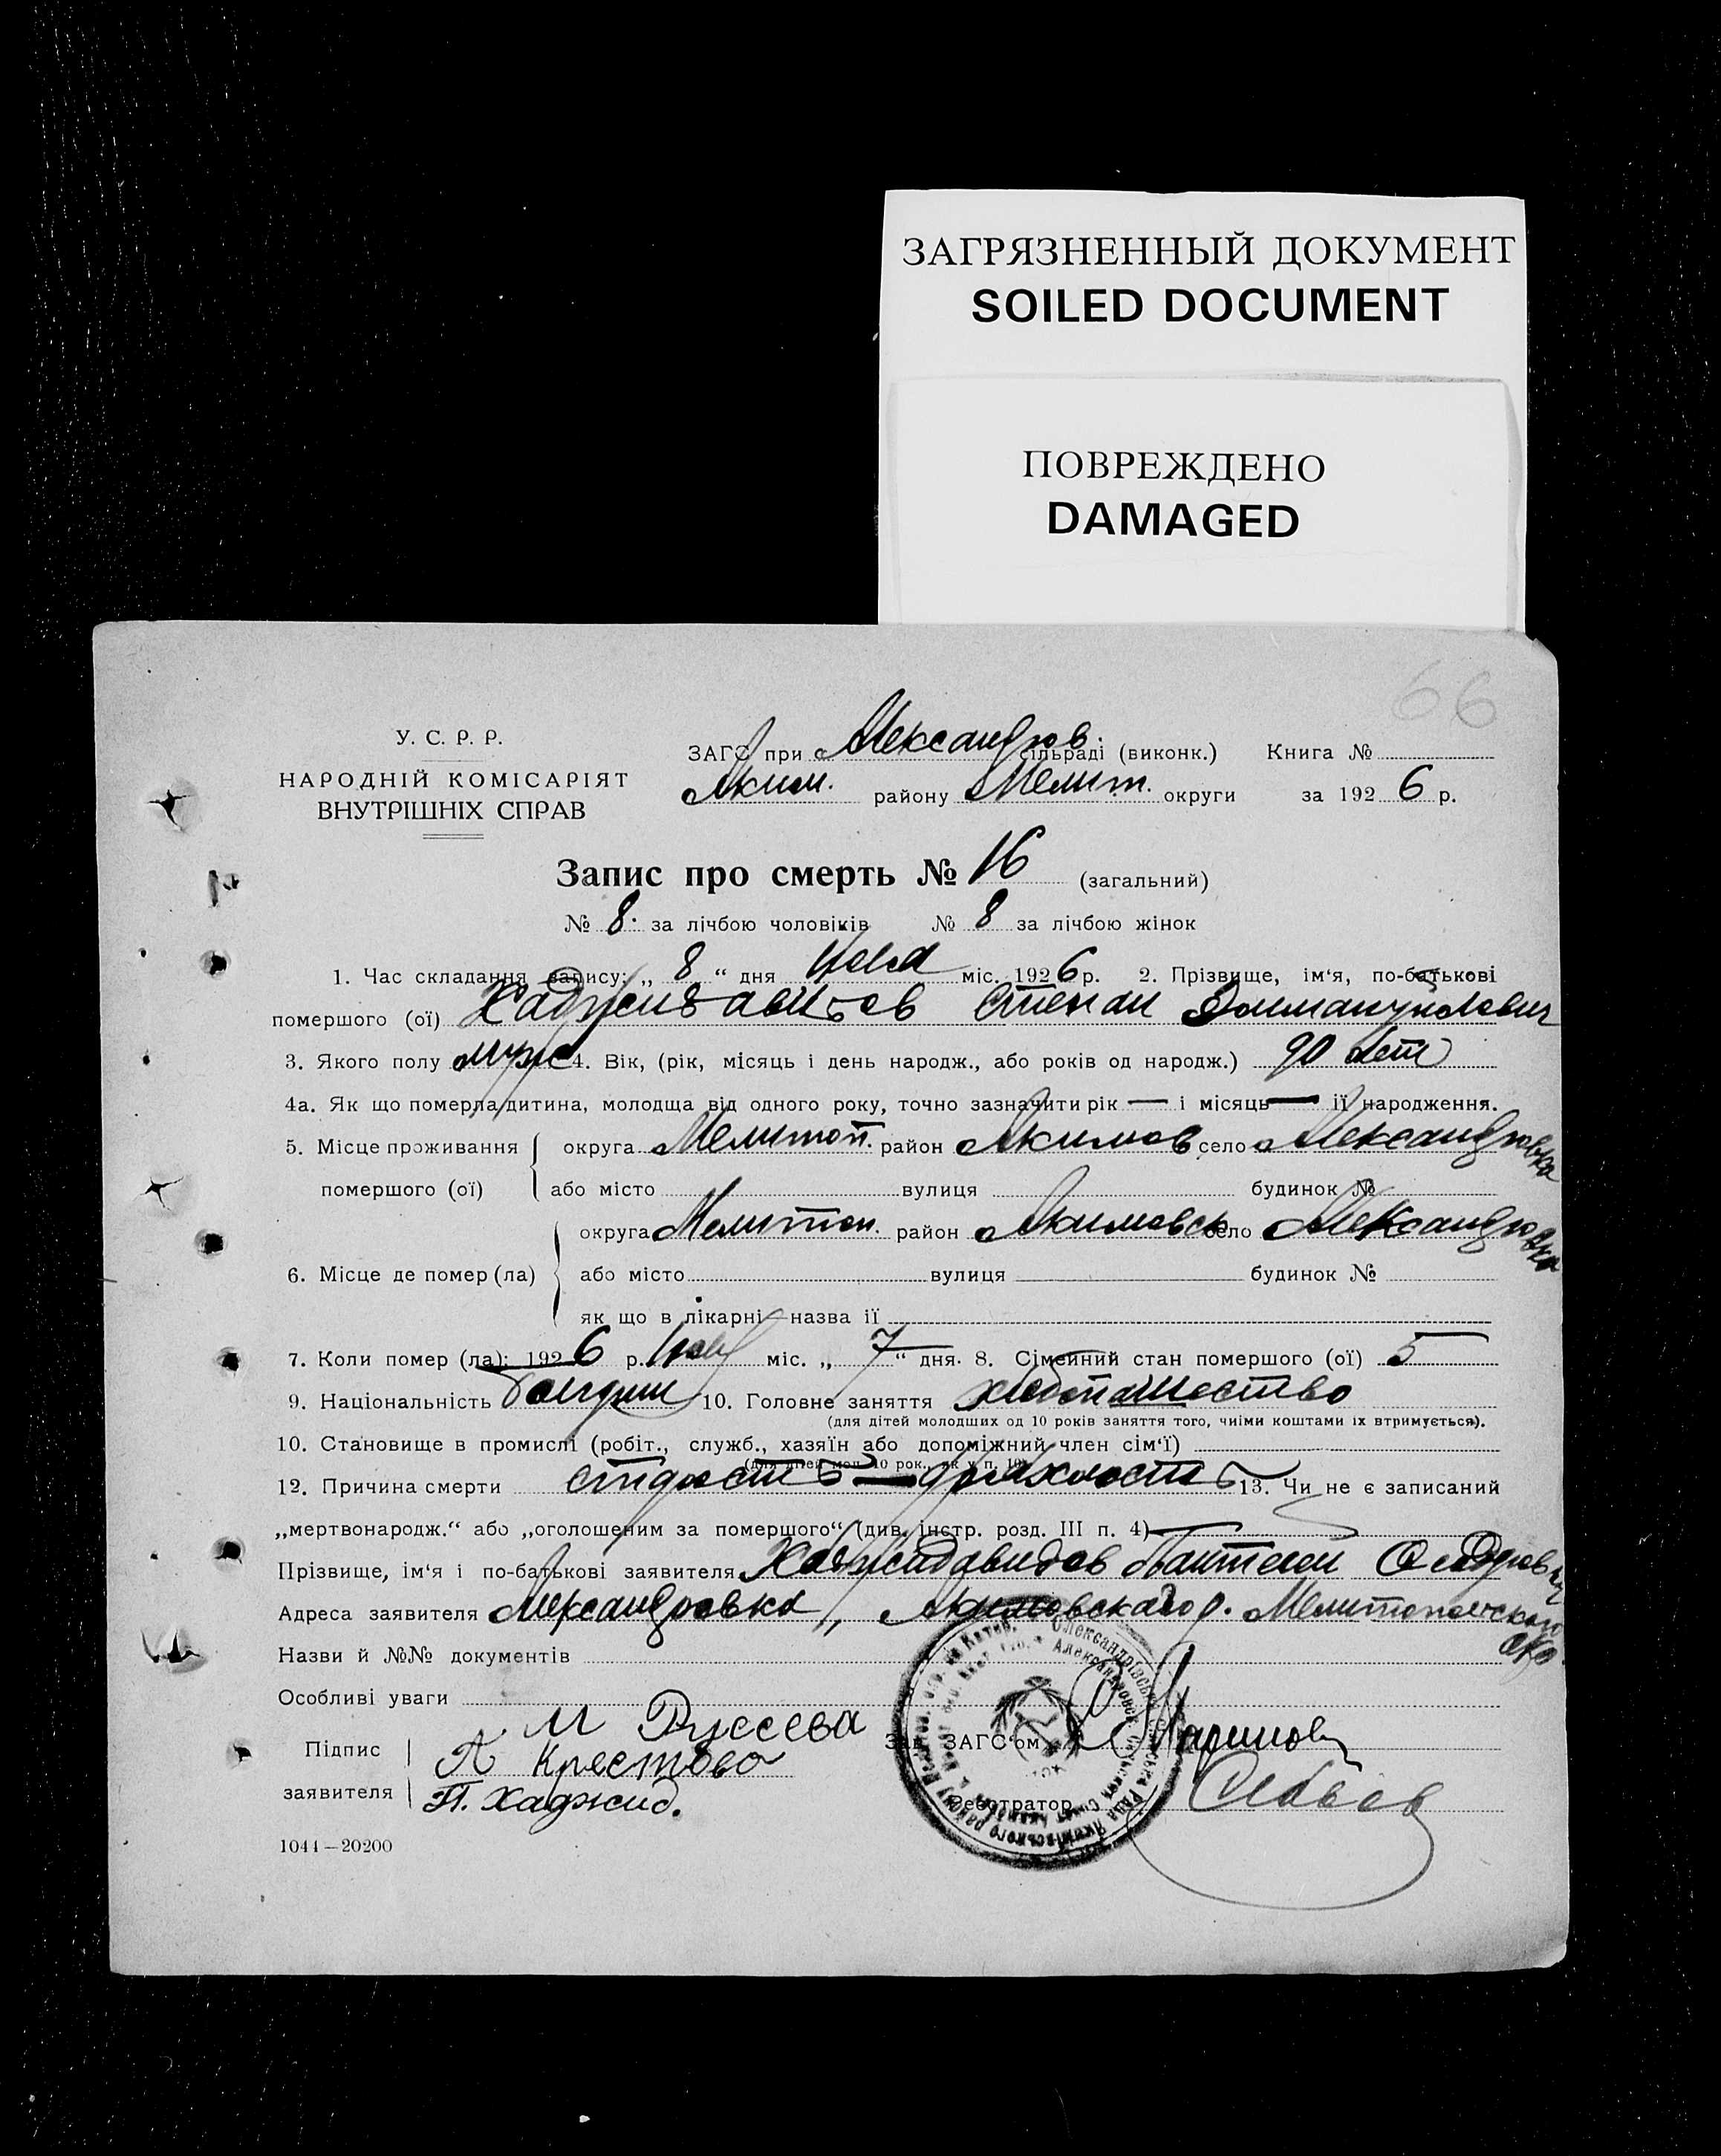 ЗАГРЯЗНЕННЫЙ ДОКУМЕНТ
SOILED DOCUMENT
ПОВРЕЖДЕНО
DAMAGED
66
У. С. Р. Р.
НАРОДНІЙ КОМІСАРІЯТ
ВНУТРІШНІХ СПРАВ
ЗАГС при Александров. сільраді (виконк.) Книга №
Аким. району Мелит. округи за 192 6 р.
Запис про смерть № 16 (загальний)
№ 8. за лічбою чоловіків № 8 за лічбою жінок
1. Час складання запису: „ 8 “ дня міс. 192 6 р. 2. Прізвище, ім‘я, по-батькові
помершого (ої) Хаджидавидов Степан Эммануилович
3. Якого полу муж 4. Вік, (рік, місяць і день народж., або років од народж.) 90 лет
4а. Як що померла дитина, молодща від одного року, точно зазначити рік — і місяць — її народження.
5. Місце проживання округа Мелитоп. район Акимов село Александровка
помершого (ої) або місто вулиця будинок №
округа Мелитоп. район Акимовск село Александровка
6. Місце де помер (ла) або місто вулиця будинок №
як що в лікарні—назва її
7. Коли помер (ла): 192 6 р. міс. „ 7 “ дня. 8. Сімейний стан помершого (ої) 5
9. Національність 10. Головне заняття хлебопашество
(для дітей молодших од 10 років заняття того, чиїми коштами їх втримується).
10. Становище в промислі (робіт., служб., хазяїн або допоміжний член сім‘ї)
(для дітей мол. 10 рок., як у п. 10)
12. Причина смерти старость — дряхлость 13. Чи не є записаний
„мертвонародж.“ або „оголошеним за помершого“ (див. інстр. розд. III п. 4)
Прізвище, ім‘я і по-батькові заявителя Хаджидавидов Пантелей
Адреса заявителя Александровка, Акимовского р. Мелитопольского окр.
Назви й №№ документів
Особливі уваги
М Русева
Підпис А Крестова Зав. ЗАГС‘ом Маринов
заявителя П. Хаджид. Реєстратор
1044—20200